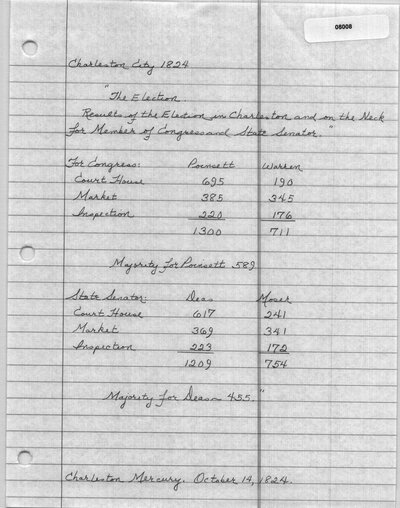 08008
Charleston City 1824
"The Election.
Results of the Election in Charleston and on the Neck
for Member of Congress and State Senator."
For Congress: Poinsett Warren
Court House 695 190
Market 385 345
Inspection 220 176
1300 711
Majority for Poinsett 589
State Senator: Deas Moser
Court House 617 241
Market 369 341
Inspection 223 172
1209 754
Majority for Deas 455."
Charleston Mercury. October 14, 1824.